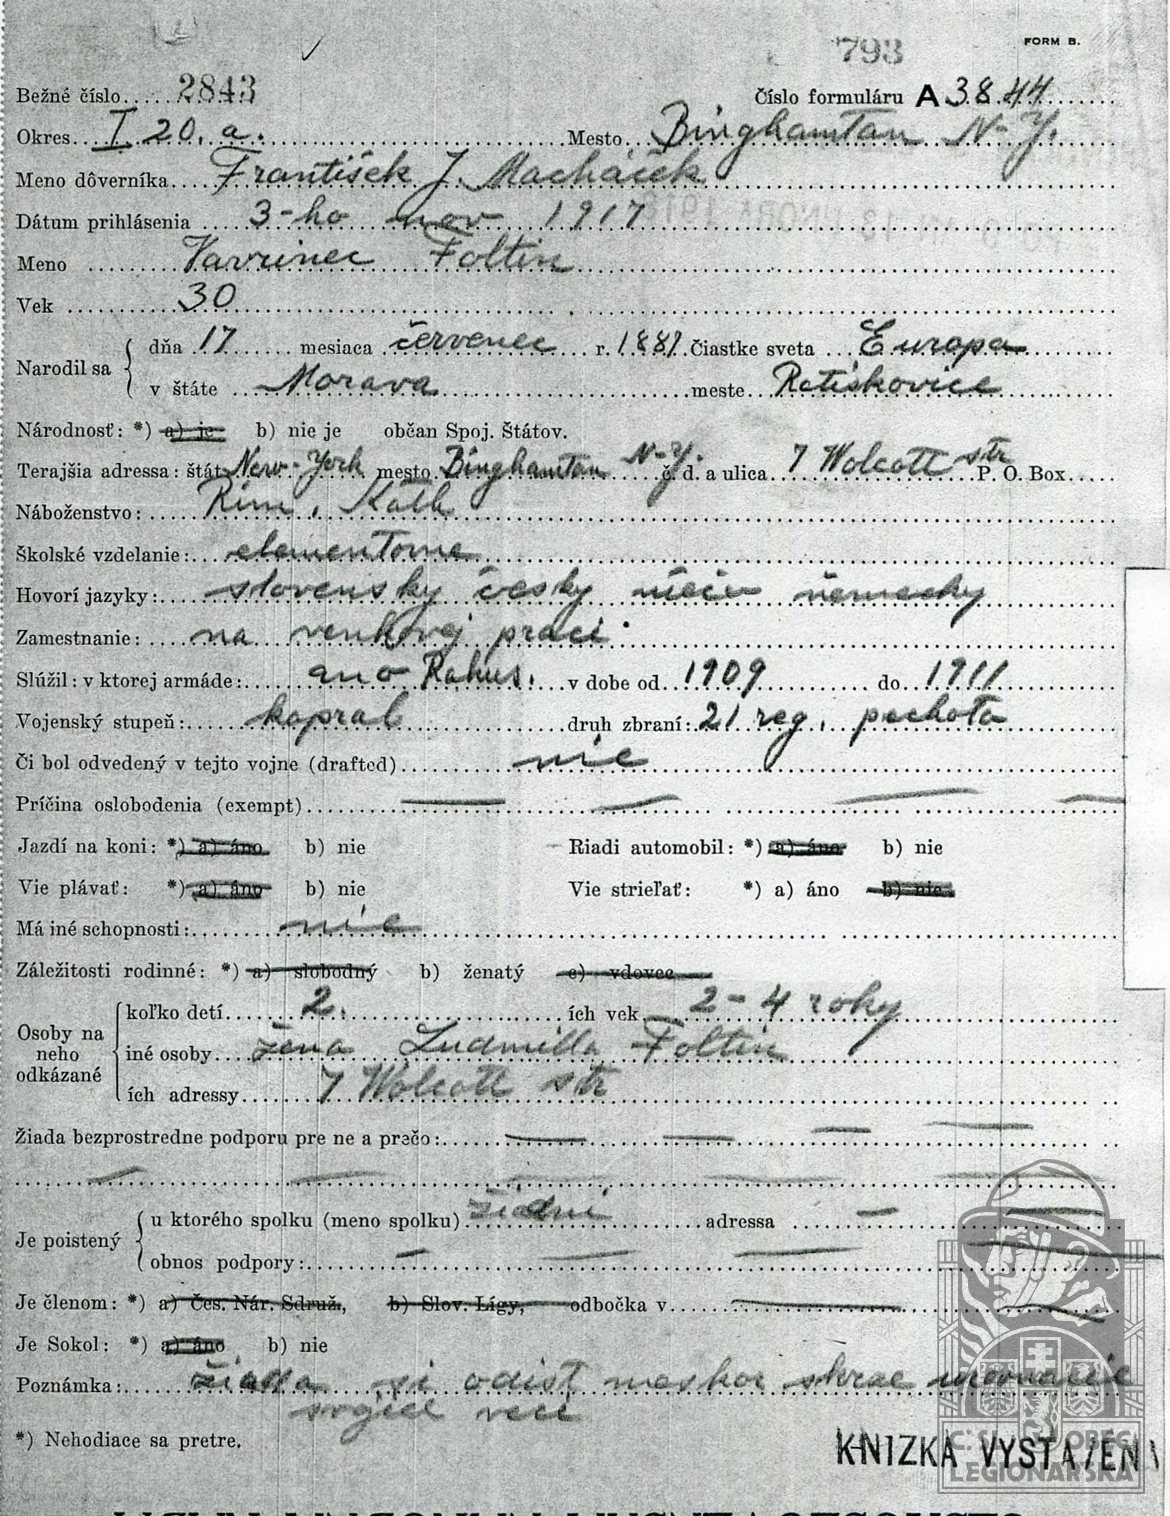 793 FORM B.
Bežné číslo 2843 Číslo formuláru A 3844
Okres I 20. a. Mesto Binghamtan N-Y.
Meno dôverníka František J. Macháček
Dátum prihlásenia 3-ho nov 1917
Meno Vavrinec Foltin
Vek 30
Narodil sa dňa 17 mesiaca červenec r. 1887 Čiastke sveta Europa
v štáte Morava meste Ratiskovice
Národnosť: *) a) je b) nie je občan Spoj. Štátov.
Terajšia adressa: štát New-York mesto Binghamtan N-Y. č. d. a ulica 7 Wolcott str P. O. Box
Náboženstvo: Rim. Kath
Školské vzdelanie: elementorne
Hovorí jazyky: slovensky česky německy
Zamestnanie: na venkovej praci
Slúžil: v ktorej armáde: ano Rakus. v dobe od 1909 do 1911
Vojenský stupeň: kapral druh zbraní: 21 reg. pechota
Či bol odvedený v tejto vojne (drafted) nie
Príčina oslobodenia (exempt)
Jazdí na koni: *) a) áno b) nie Riadi automobil: *) a) áno b) nie
Vie plávať: *) a) áno b) nie Vie strieľať: *) a) áno b) nie
Má iné schopnosti: nie
Záležitosti rodinné: *) a) slobodný b) ženatý c) vdovec
Osoby na neho odkázané koľko detí 2. ích vek 2-4 roky
iné osoby žena Ludmilla Foltin
ích adressy 7 Wolcott str
Žiada bezprostredne podporu pre ne a prečo:
Je poistený u ktorého spolku (meno spolku) žiadni adressa
obnos podpory:
Je členom: *) a) Čes. Nár. Sdruž., b) Slov. Lígy, odbočka v
Je Sokol: *) a) áno b) nie
Poznámka: žiada si odist meskor skrze
svojich veci
*) Nehodiace sa pretre.
KNIZKA VYSTAVENA
ČS. OBEC
LEGIONÁŘSKÁ